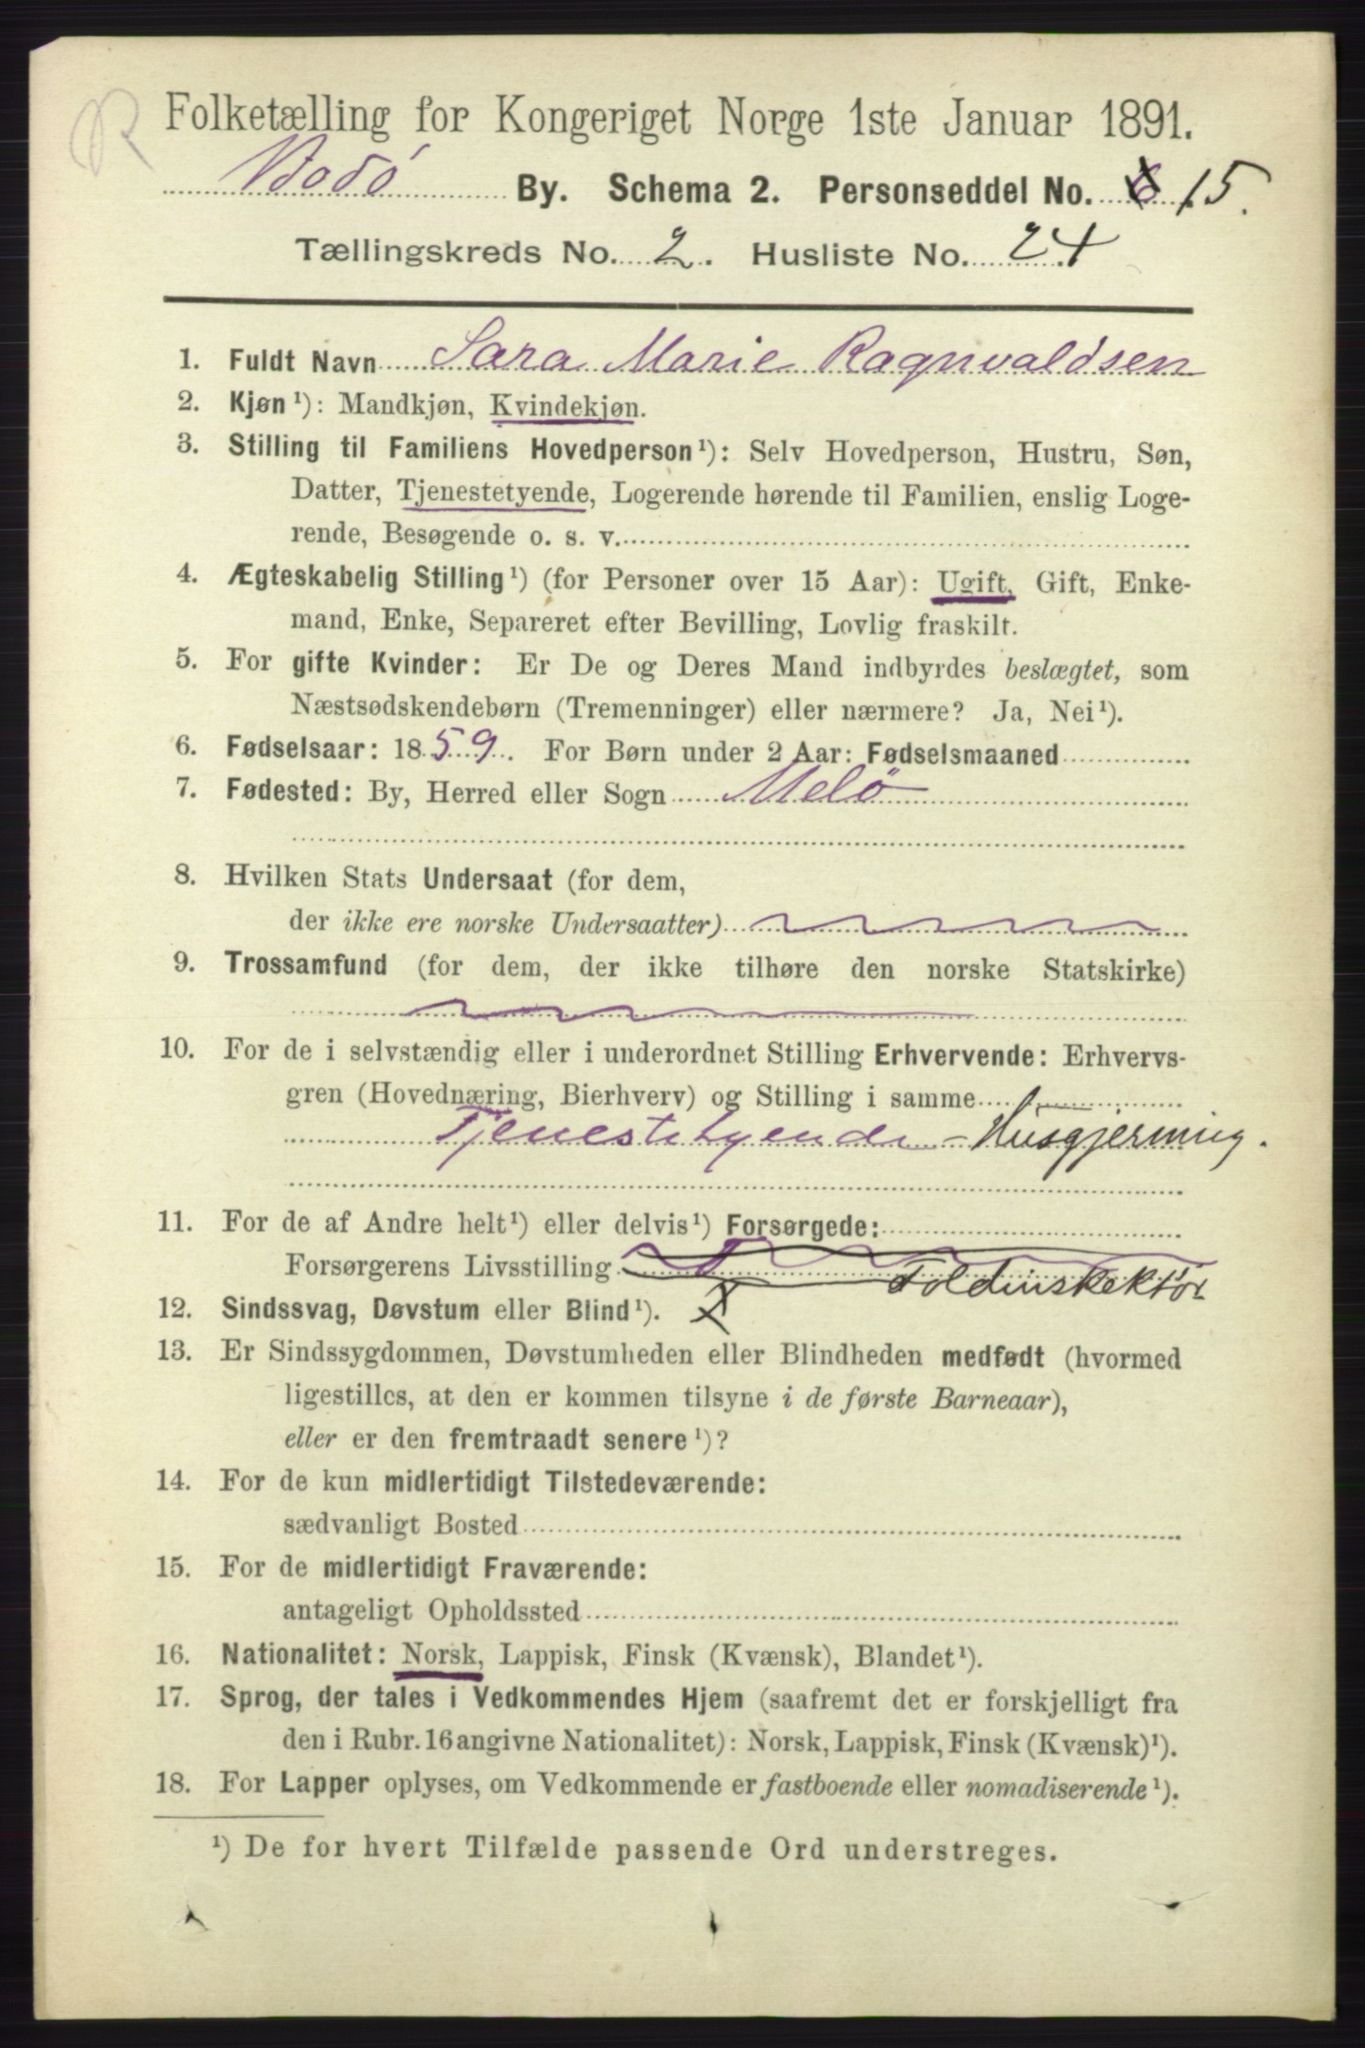 R
Folketælling for Kongeriget Norge 1ste Januar 1891.
Bodö By. Schema 2. Personseddel No. 6 15.
Tællingskreds No. 2. Husliste No. 24
1. Fuldt Navn Sara Marie Ragnvaldsen
2. Kjøn¹): Mandkjøn, Kvindekjøn.
3. Stilling til Familiens Hovedperson¹): Selv Hovedperson, Hustru, Søn,
Datter, Tjenestetyende, Logerende hørende til Familien, enslig Loge-
rende, Besøgende o. s. v.
4. Ægteskabelig Stilling¹) (for Personer over 15 Aar): Ugift, Gift, Enke-
mand, Enke, Separeret efter Bevilling, Lovlig fraskilt.
5. For gifte Kvinder: Er De og Deres Mand indbyrdes beslægtet, som
Næstsødskendebørn (Tremenninger) eller nærmere? Ja, Nei¹).
6. Fødselsaar: 1859. For Børn under 2 Aar: Fødselsmaaned
7. Fødested: By, Herred eller Sogn Melö
8. Hvilken Stats Undersaat (for dem,
der ikke ere norske Undersaatter)
9. Trossamfund (for dem, der ikke tilhøre den norske Statskirke)
10. For de i selvstændig eller i underordnet Stilling Erhvervende: Erhvervs-
gren (Hovednæring, Bierhverv) og Stilling i samme
Tjenestetyende - Husgjerning.
11. For de af Andre helt¹) eller delvis¹) Forsørgede:
Forsørgerens Livsstilling Toldinskektör
12. Sindssvag, Døvstum eller Blind¹).
13. Er Sindssygdommen, Døvstumheden eller Blindheden medfødt (hvormed
ligestilles, at den er kommen tilsyne i de første Barneaar),
eller er den fremtraadt senere¹)?
14. For de kun midlertidigt Tilstedeværende:
sædvanligt Bosted
15. For de midlertidigt Fraværende:
antageligt Opholdssted
16. Nationalitet: Norsk, Lappisk, Finsk (Kvænsk), Blandet¹).
17. Sprog, der tales i Vedkommendes Hjem (saafremt det er forskjelligt fra
den i Rubr. 16 angivne Nationalitet): Norsk, Lappisk, Finsk (Kvænsk)¹).
18. For Lapper oplyses, om Vedkommende er fastboende eller nomadiserende¹).
¹) De for hvert Tilfælde passende Ord understreges.